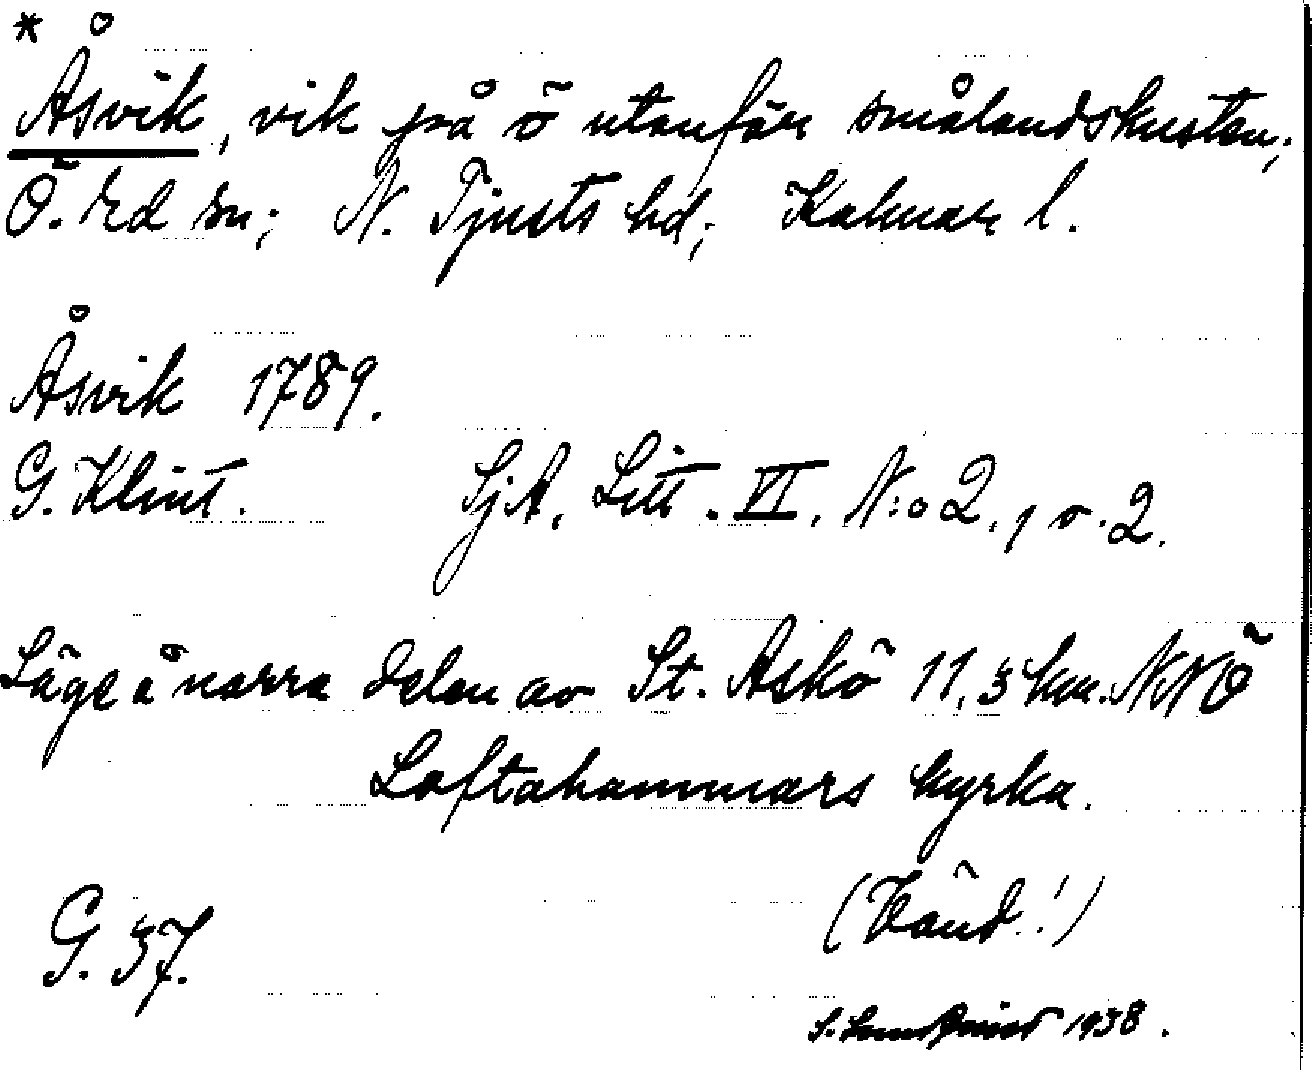 * Åsvik, vik på ö utanför smålandskusten;
Ö. Ed sn; N. Tjusts hd; Kalmar l.
Åsvik 1789.
G. Klint. SjA, Litt. VI, N:o 2, 1 o. 2.
Läge å norra delen av St. Askö 11,3 km. NNÖ
Loftahammars kyrka.
(Vänd!)
G. 37.
1938.